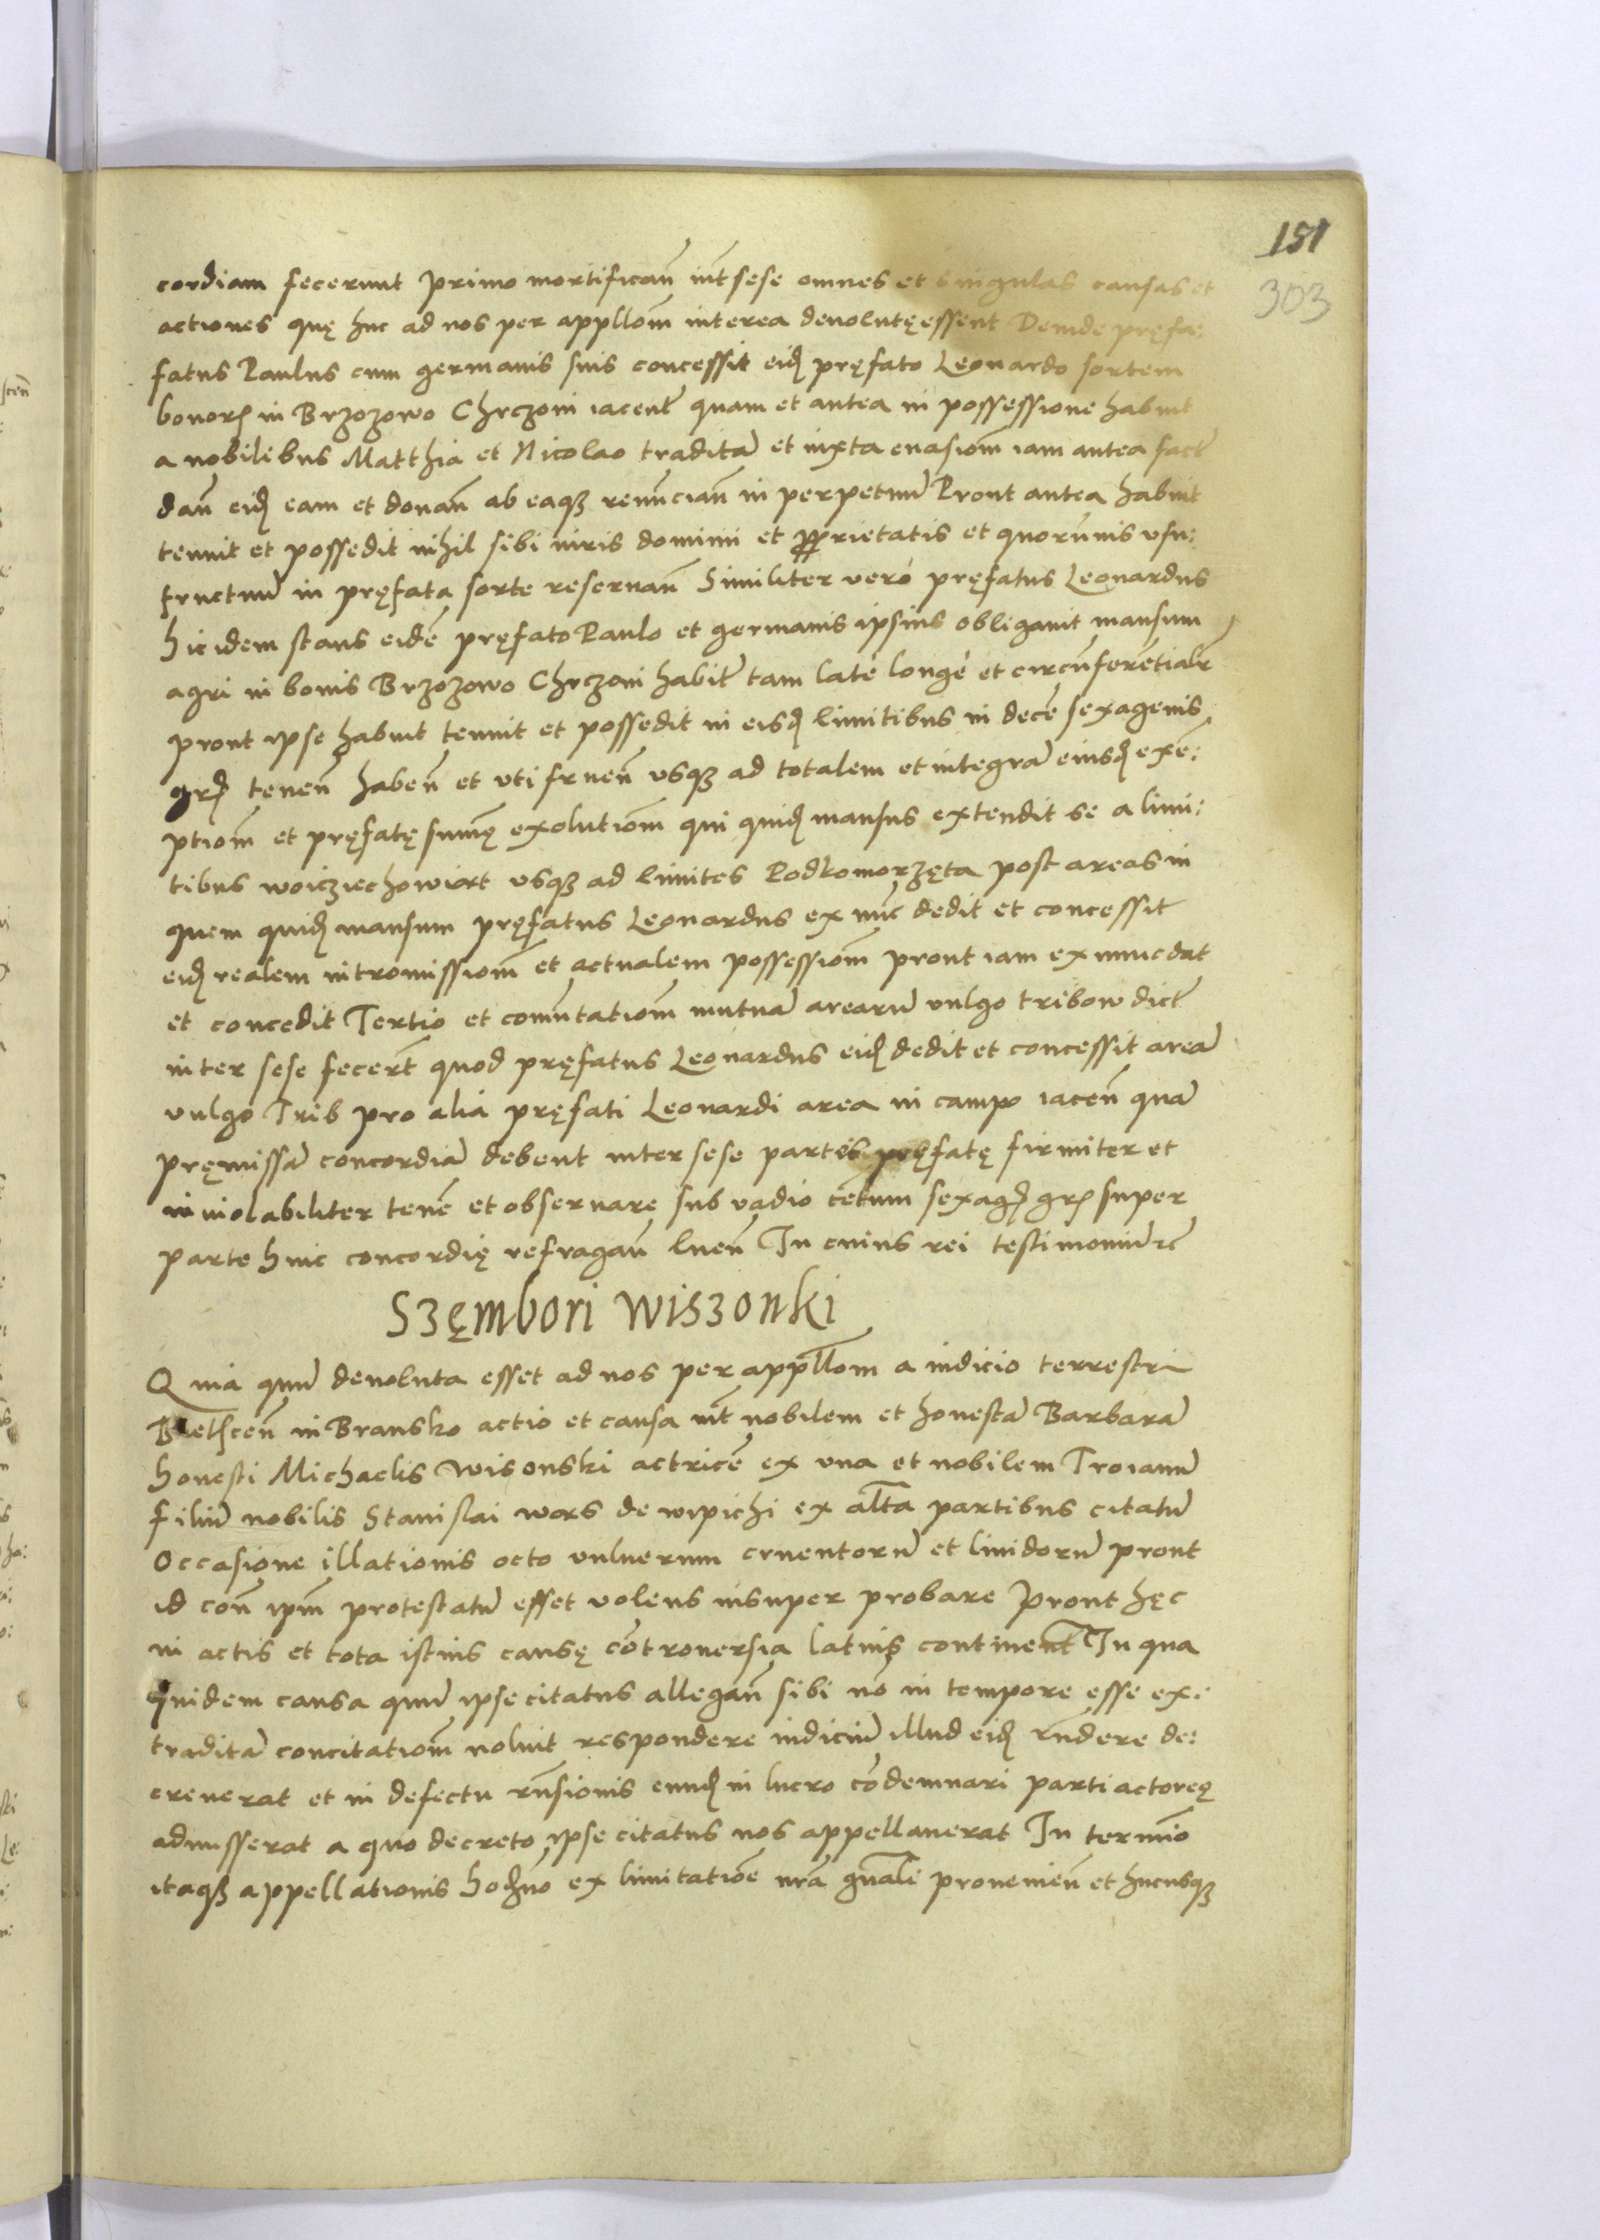 151
303
cordiam fecerunt primo mortifican̄ int̄ sese omnes et singulas causas et
actiones quę huc ad nos per appllom̄ interea deuolutę essent Deinde pręfa:
fatus Paulus cum germanis suis concessit eid̨ pręfato Leonardo sortem
bonor̨ in Brzozowo Chrczoni iacent̄ quam et antea in possessione habuit
a nobilibus Matthia et Nicolao traditā et iuxta euasiom̄ iam antea fact̄
dan̄ eid̨ eam et donan̄ ab eaqꝫ renūcian̄ in perpetuū Prout antea habuit
tenuit et possedit nihil sibi iuris dominii et ꝓprietatis et quorūuis vsu:
fructuū in pręfata sorte reseruan̄ Similiter vero pręfatus Leonardus
hic idem stans eidē pręfato Paulo et germanis ipsius obligauit mansum
agri in bonis Brzozowo Chrczoni habit̄ tam latè longè et circūferētialr̄
prout ipse habuit tenuit et possedit in eisd̨ limitibus in decē sexagenis
gr̨ tenen̄ haben̄ et vti fruen̄ vsqꝫ ad totalem et integrā eiusd̨ exē:
ptiom̄ et pręfatę sum̄ę exolutiom̄ qui quid̨ mansus extendit se a limi:
tibus woicziechowiat vsqꝫ ad limites Podkomorzęta post areas in
quem quid̨ mansum pręfatus Leonardus ex nūc dedit et concessit
eid̨ realem intromissiom̄ et actualem possessiom̄ prout iam ex nunc dat
et concedit Tertio et com̄utatiom̄ mutuā arearū vulgo tribow dict̄
inter sese fecer̄t quod pręfatus Leonardus eid̨ dedit et concessit areā
vulgo Trib pro alia pręfati Leonardi area in campo iacen̄ quā
pręmissā concordiā debent inter sese partes pręfatę firmiter et
inuiolabiliter tenē et obseruare sub vadio cētum sexag̨ gr̨ super
parte huic concordię refragan̄ luen̄ In cuius rei testimoniū ec̄
Szęmbori Wiszonki
Quia quū deuoluta esset ad nos per appllom̄ a iudicio terrestri
Bielscen̄ in Bransko actio et causa int̄ nobilem et honestā Barbarā
honesti Michaelis Wisonski actricē ex vna et nobilem Troianū
filiū nobilis Stanislai wors de wipichi ex altā partibus citatū
Occasione illationis octo vulnerum cruentorū et liuidorū prout
id con̄ ipm̄ protestatū esset volens insuper probare Prout hęc
in actis et tota istius causę cōtrouersia latius continent̄ In qua
quidem causa quū ipse citatus allegan̄ sibi nō in tempore esse ex:
traditā concitatiom̄ noluit respondere iudiciū illud eid̨ rn̄dere de:
creuerat et in defectu rn̄sionis eund̨ in lucro cōdemnari parti actoreę
admisserat a quo decreto ipse citatus nos appellauerat In termīo
itaqꝫ appellationis hodꝫno ex limitatiōe nrā gnāli prouenien̄ et hucusqꝫ